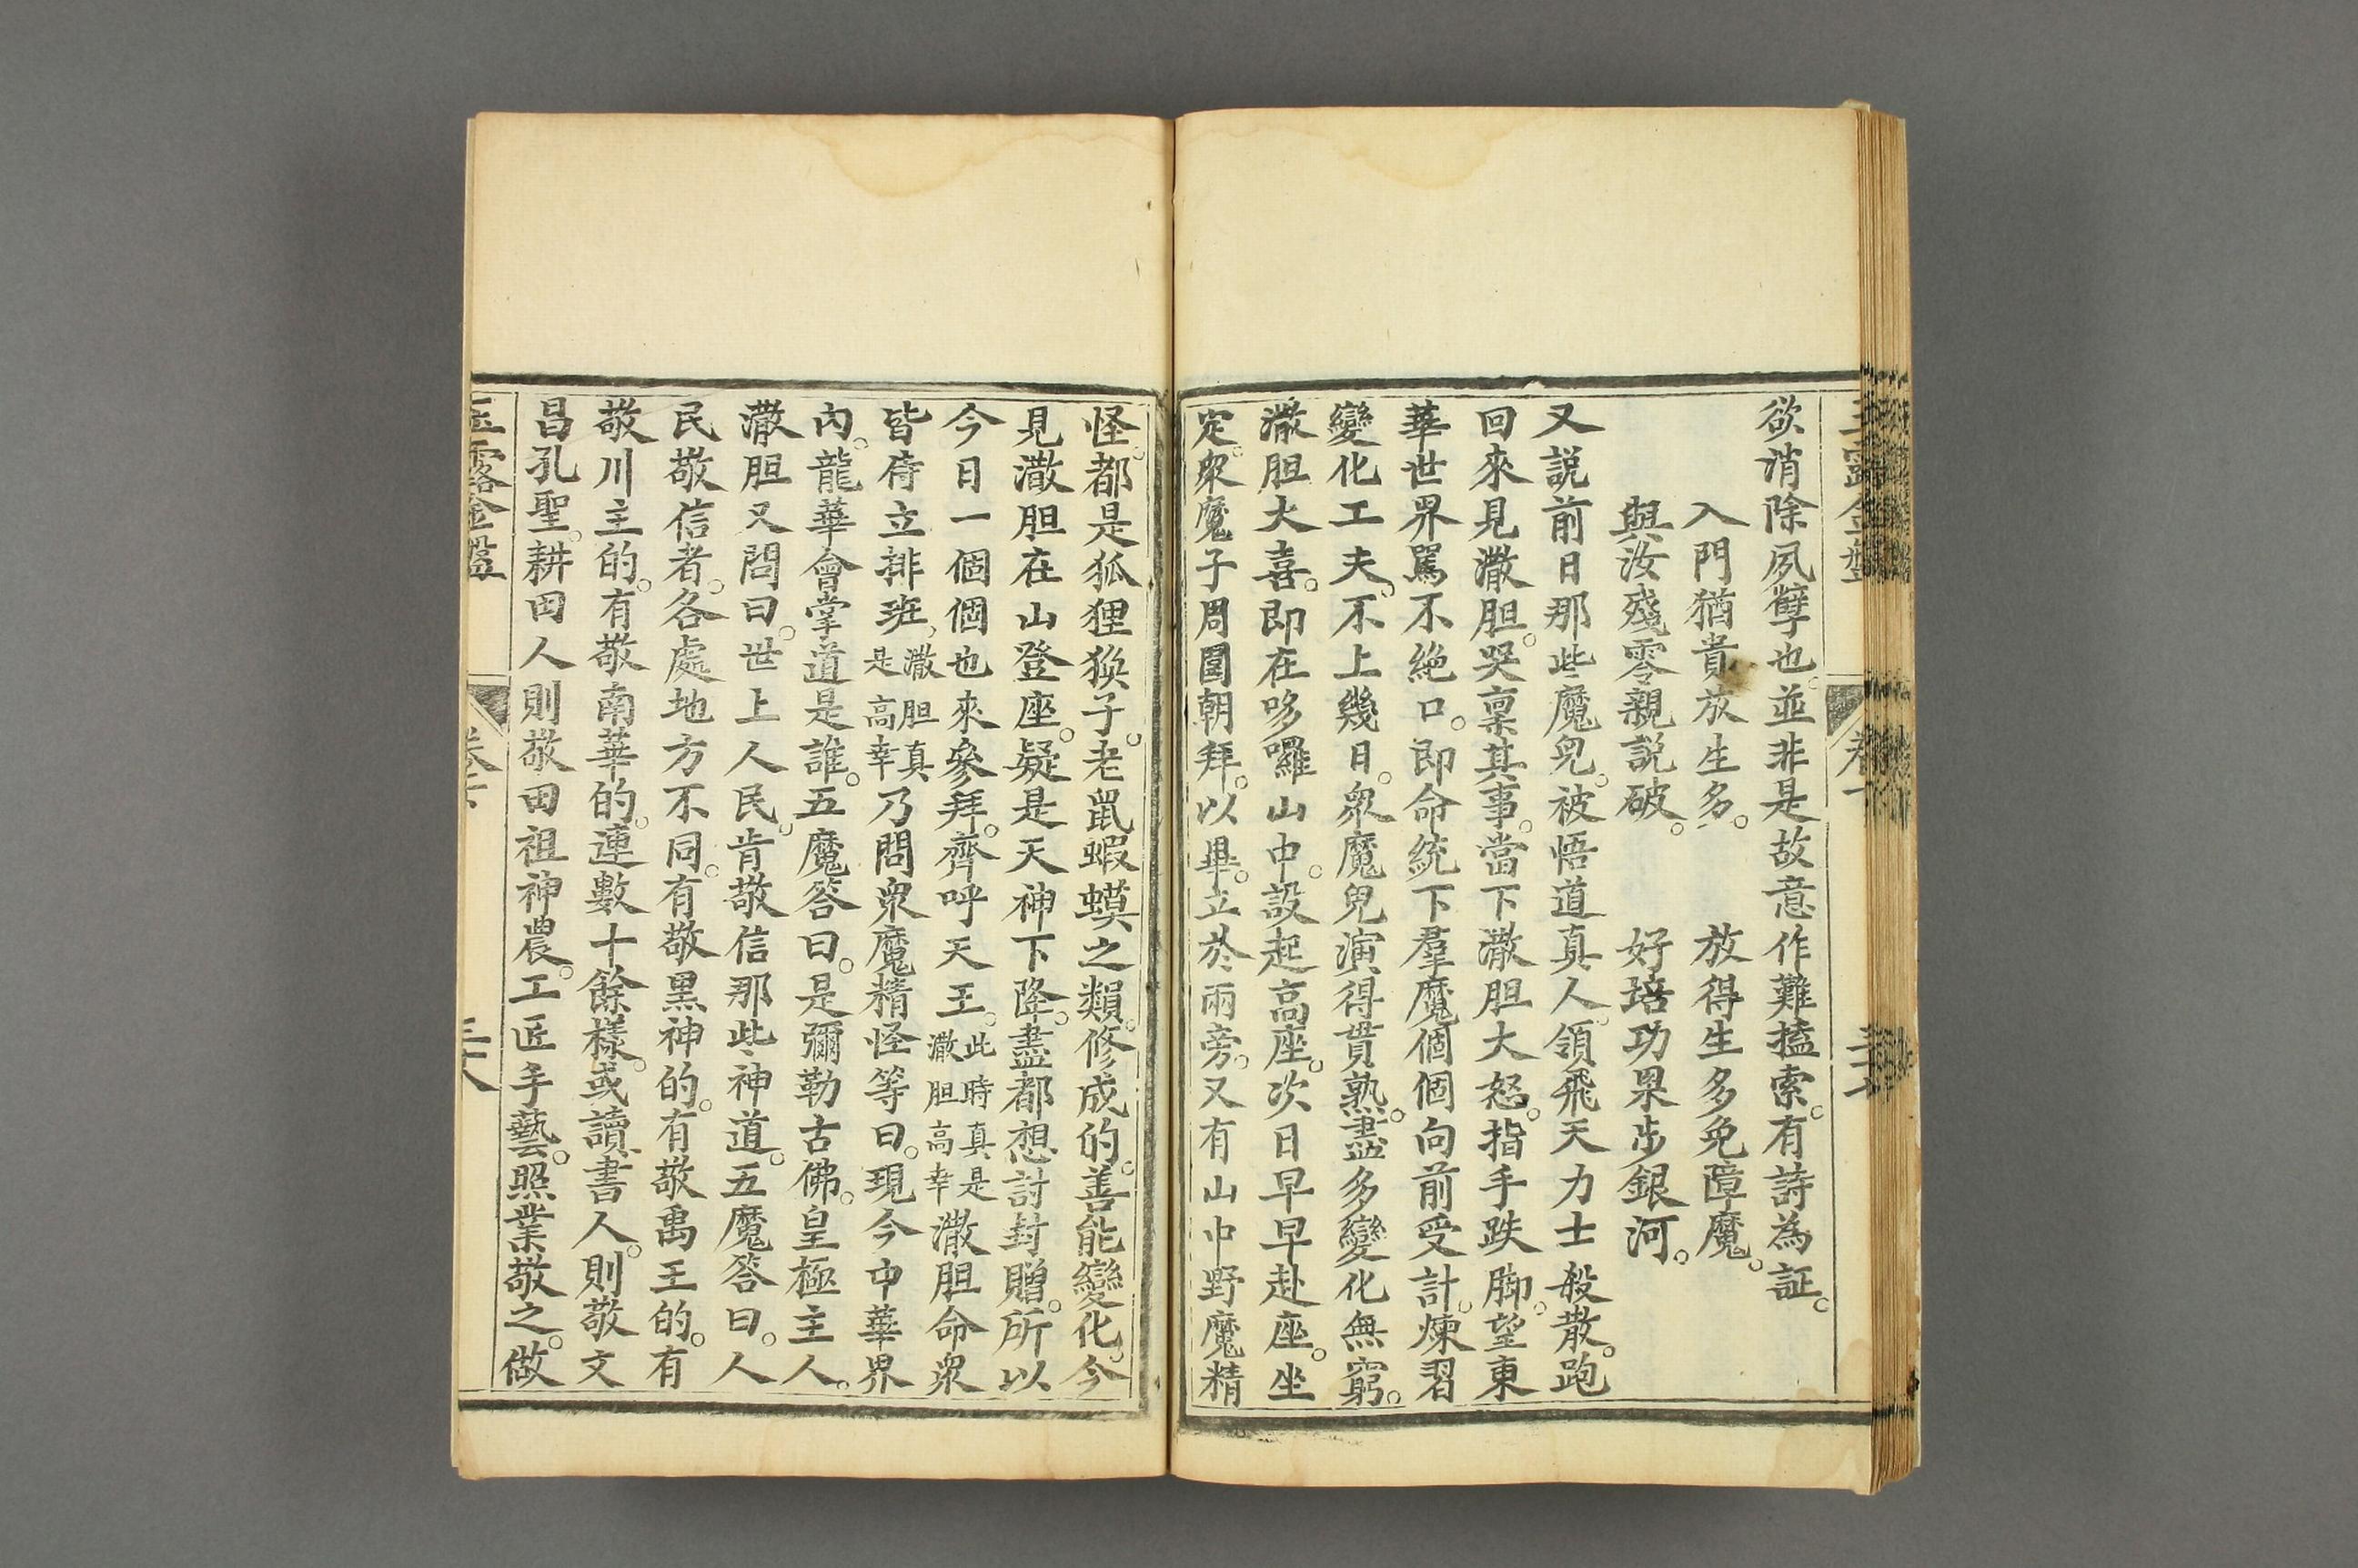 欲消除夙孽也。並非是故意作難搕索。有詩為証。
入門猶貴放生多。　放得生多免障魔。
與汝殘零親説破。　好培功果步銀河。
又説前日那些魔兒。被悟道真人。領飛天力士般散。跑
回來見潵胆。哭稟其事。當下潵胆大怒。指手跌脚。望東
華世界罵不絶口。即命統下羣魔個個向前受計。煉習
變化工夫。不上幾日。衆魔兒演得貫熟。盡多變化無窮。
潵胆大喜。即在哆囉山中。設起高座。次日早早赴座。坐
定。衆魔子周圍朝拜。以畢。立於兩旁。又有山中野魔精
怪。都是狐狸猿子。老鼠蝦蟆之類。修成的。善能變化。今
見潵胆在山登座。疑是天神下降。盡都想討封贈。所以
今日一個個也來參拜。齊呼天王。此時真是潵胆高幸潵胆命衆
皆侍立排班。潵胆真是高幸乃問衆魔精怪等曰。現今中華界
內。龍華會掌道是誰。五魔答曰。是彌勒古佛。皇極主人。
潵胆又問曰。世上人民。肯敬信那些神道。五魔答曰。人
民敬信者。各處地方不同。有敬黑神的。有敬禹王的。有
敬川主的。有敬南華的。連數十餘樣。或讀書人。則敬文
昌孔聖。耕田人則敬田祖神農。工匠手藝。照業敬之。做
玉露金盤